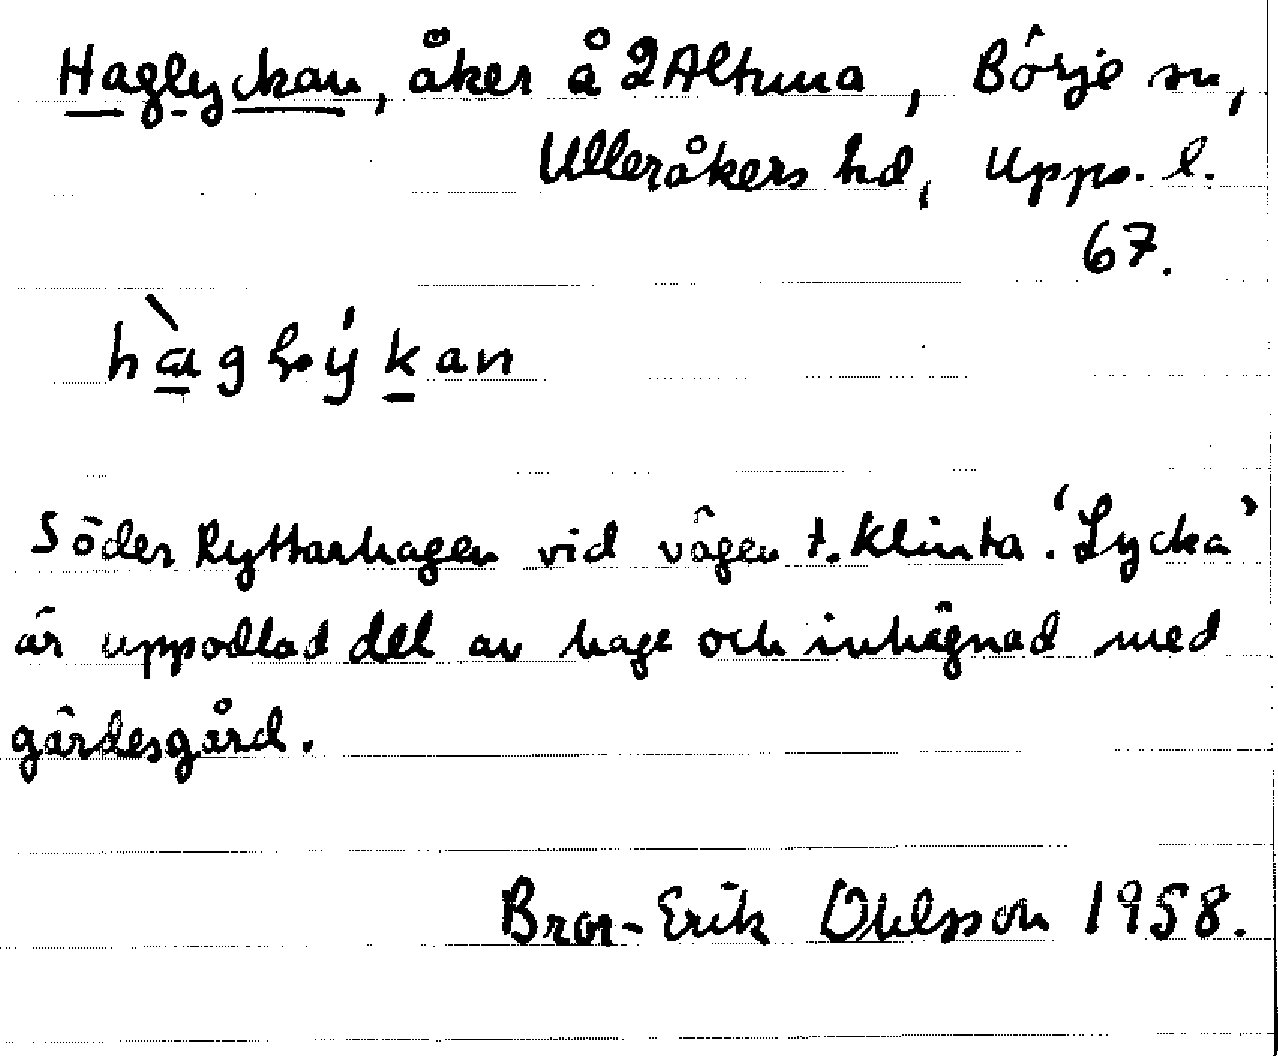 Haglyckan, åker å 2 Altuna, Börje sn,
Ulleråkers hd, Upps. l.
67.
Söder Ryttarhagen vid vägen t. Klinta. 'Lycka'
är uppodlad del av hage och inhägnad med
gärdesgård.
Bror-Erik Ohlsson 1958.